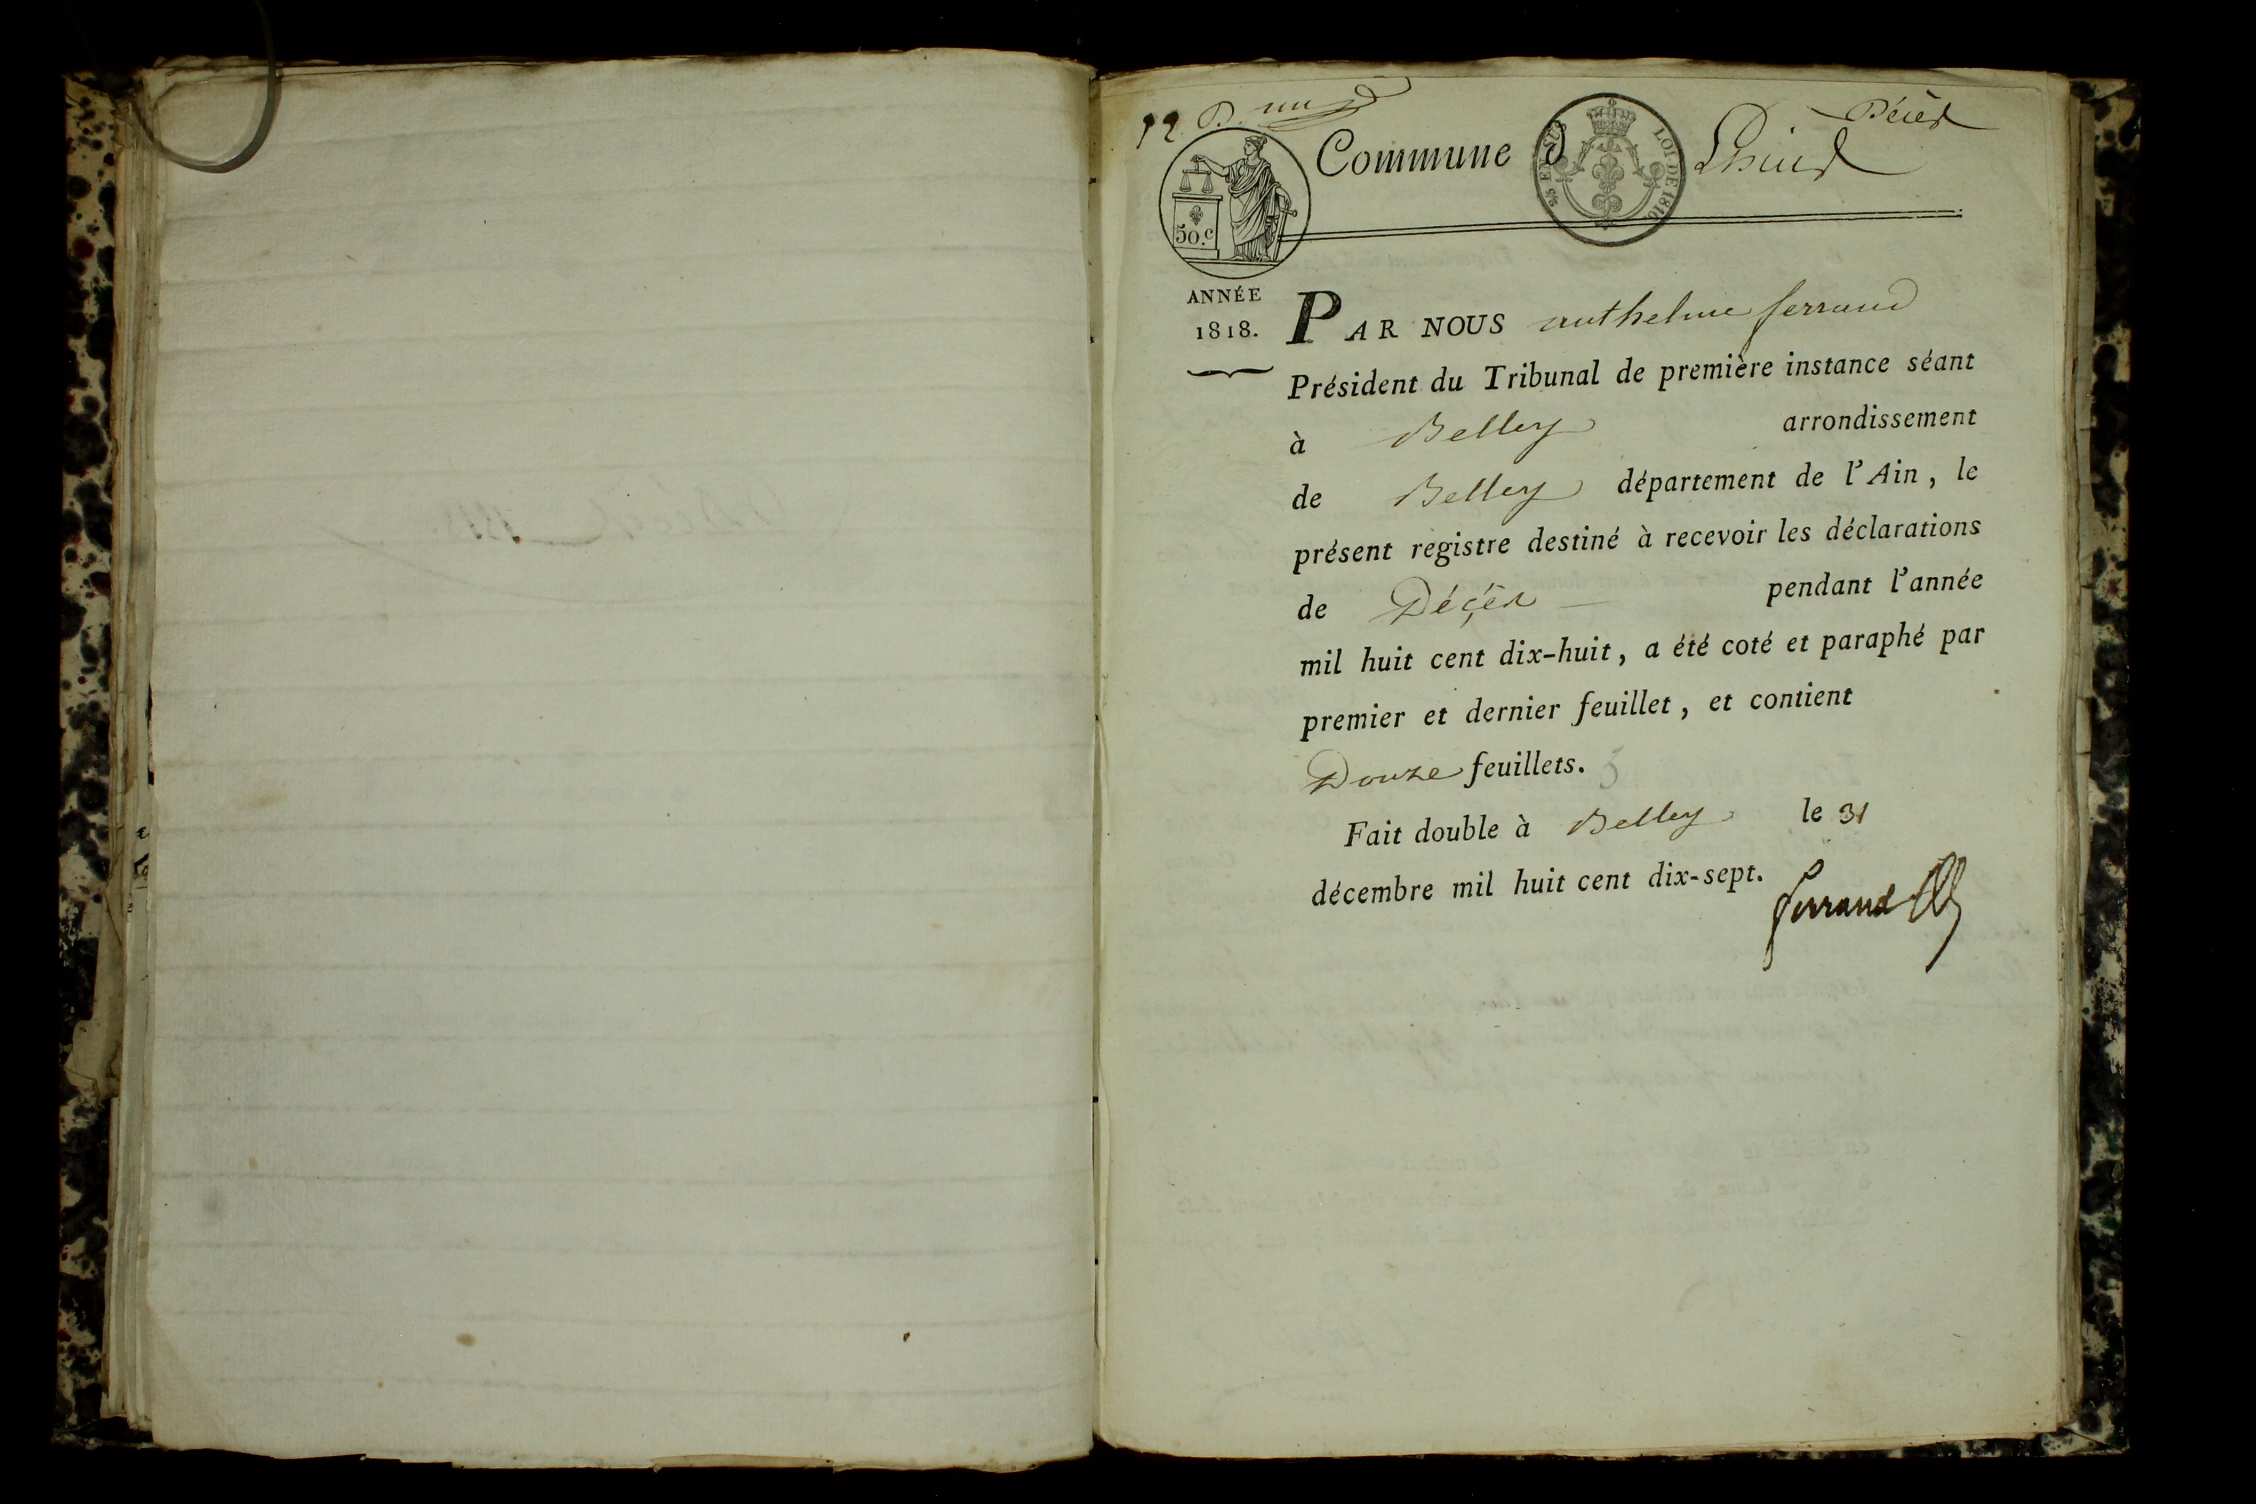 12
Décès
Commune d Lhuis
50.c
25 EN SUS
LOI DE 1816
ANNÉE
1818.
PAR NOUS anthelme ferrand
Président du Tribunal de première instance séant
à Belley arrondissement
de Belley département de l'Ain, le
présent registre destiné à recevoir les déclarations
de Décès pendant l'année
mil huit cent dix-huit, a été coté et paraphé par
premier et dernier feuillet, et contient
Douze feuillets.
Fait double à Belley le 31
décembre mil huit cent dix-sept.
ferrand